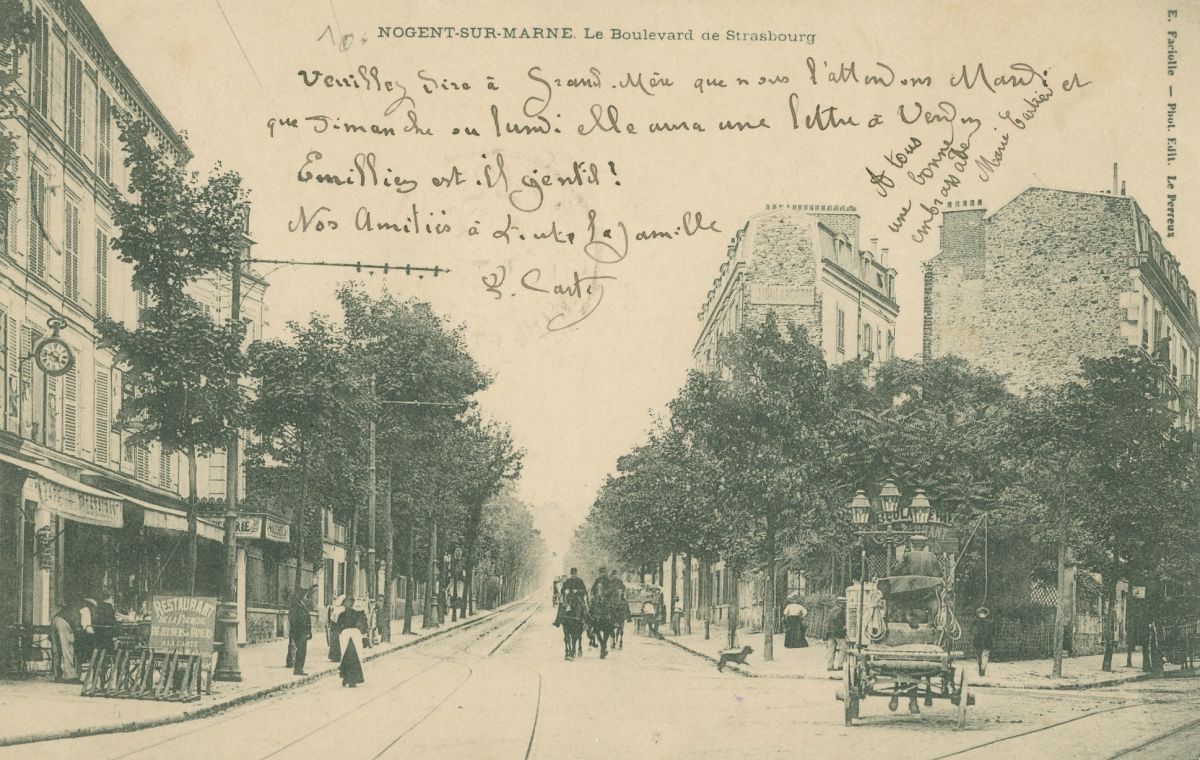 NOGENT-SUR-MARNE. Le Boulevard de Strasbourg
E. Faciolle — Phot. Edit. Le Perreux
10.
Veuillez dire à Grand-Mère que nous l'attendons Mardi et
que dimanche ou lundi elle aura une lettre à
est-il gentil!
Nos Amitiés à toute la famille
A tous
une bonne
embrassade
Marie
CAFÉ RESTAURANT
RESTAURANT
DE LA FOURCHE
DEJEUNERS & DINERS
A LA CARTE